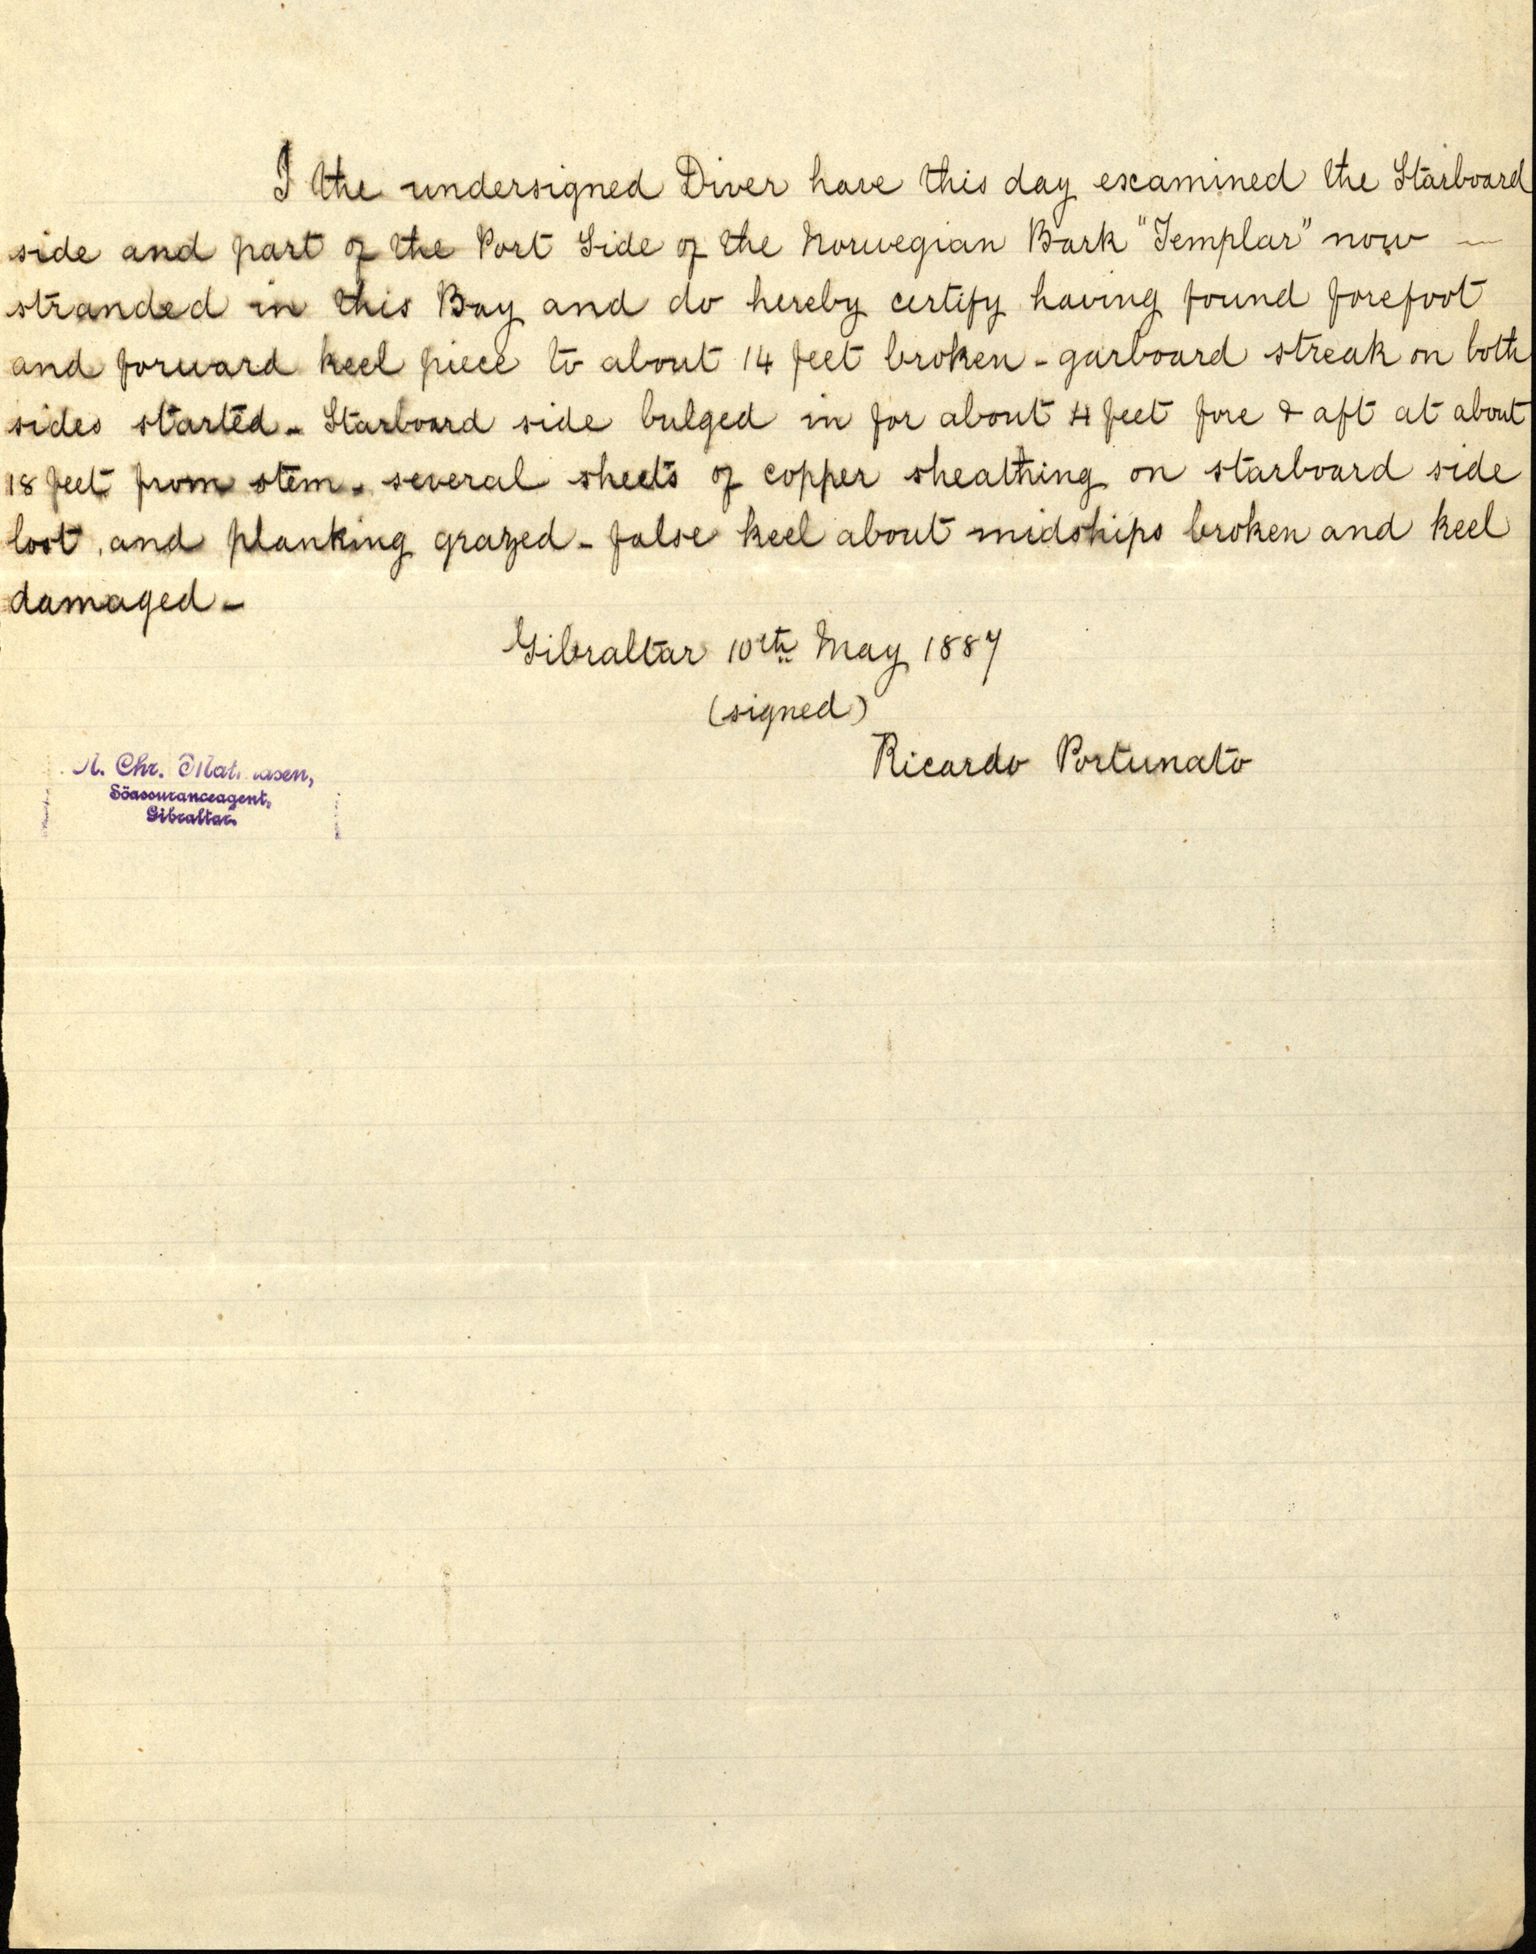 I the undersigned Diver have this day examined the Starboard
side and part of the Port Side of the Norwegian Bark "Templar" now
stranded in this Bay and do hereby certify having found forefoot
and forward keel piece to about 14 feet broken - garboard streak on both
sides started - Starboard side bulged in for about 4 feet fore & aft at about
18 feet from stem - several sheets of copper sheathing on starboard side
lost, and planking grazed - false keel about midships broken and keel
damaged -
Gibraltar 10th May 1887
(signed)
Ricardo Portunato
Chr.
Söassuranceagent,
Gibraltar.